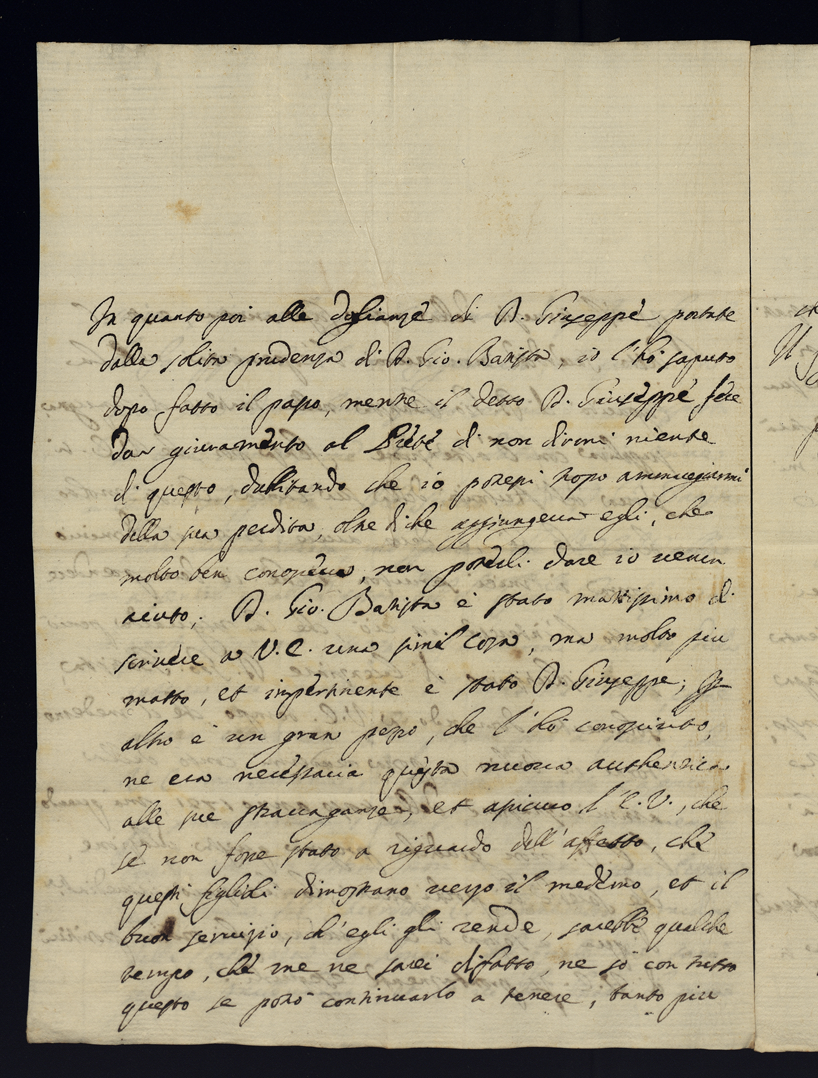 In quanto poi alle doglianze di D. Giuseppe portate
dalla solita prudenza di D. Gio. Batista, io l'hò saputo
dopo fatto il passo, mentre il detto D. Giuseppe fece
dar giuramento al di non dirmi niente
di questo, dubbitando che io potessi troppo
della sua perdita, oltre di che aggiungeva egli, che
molto ben conosceva, non poterli dare io verun
aiuto; D. Gio. Batista è stato mattissimo di
scrivere a V.E. una simil cosa, ma molto più
matto, et impertinente è stato D. Giuseppe; per
altro è un gran pezzo, che l'hò conosciuto,
ne era necessaria questa nuova authentica
alle sue stravaganze, et assicuro l'E.V., che
se non fosse stato a riguardo dell'affetto, che
questi figlioli dimostrano verso il medemo, et il
buon servizio, ch'egli gli rende, sarebbe qualche
tempo, che me ne sarei disfatto, ne sò con tutto
questo se potrò continuarlo a tenere, tanto più